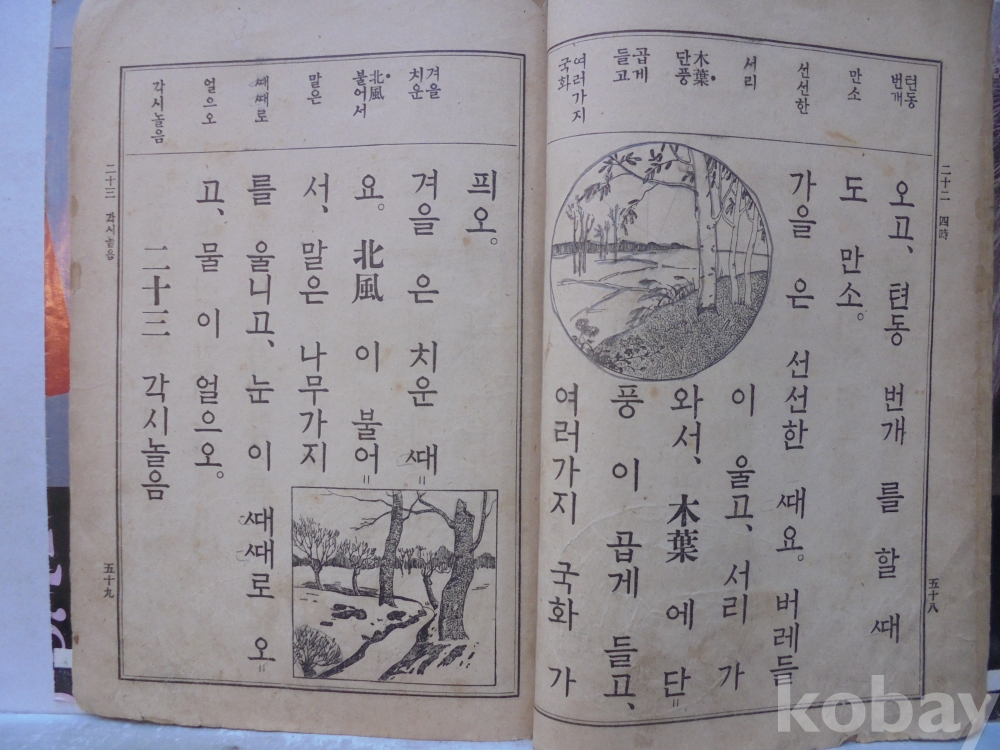 二十二 四時
五十八
텬동
번개
만소
선선한
서리
木葉
단풍
곱게
들고
여러가지
국화
오고、텬동 번개 를 할 ᄯᅢ
도 만소。
가을 은 선선한 ᄯᅢ요。버레들
이 울고、서리 가
와서、木葉 에 단=
풍 이 곱게 들고、
여러가지 국화 가
겨을
치운
北風
불어서
말은
ᄯᅢᄯᅢ로
얼으오
각시놀음
픠오。
겨을 은 치운 ᄯᅢ=
요。北風 이 불어=
서、말은 나무가지
를 울니고、눈 이 ᄯᅢᄯᅢ로 오=
고、물 이 얼으오。
二十三 각시놀음
二十三 각시놀음
五十九
kobay